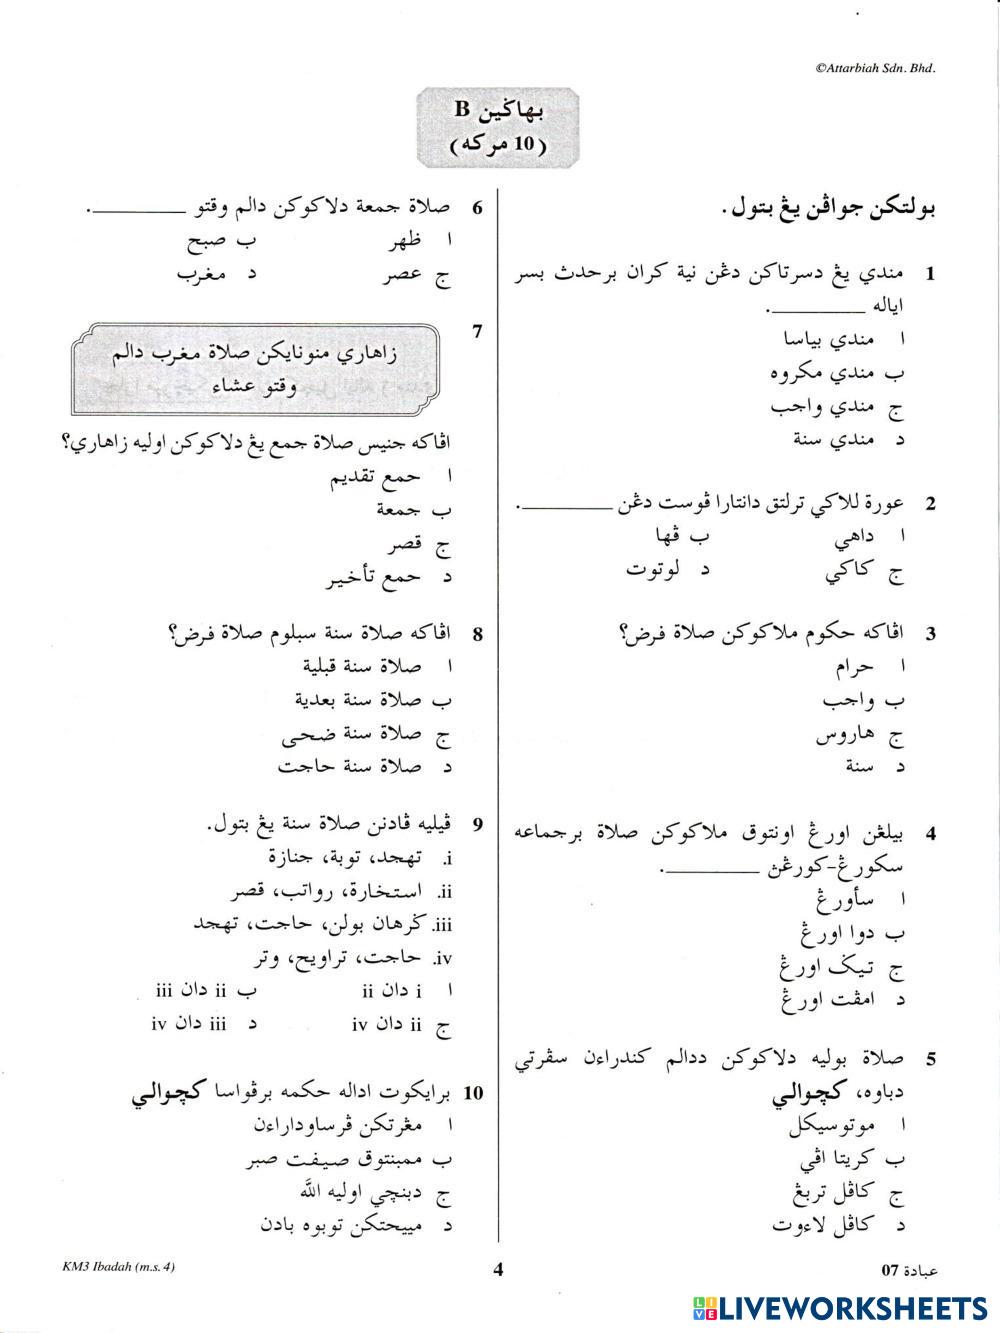 ©Attarbiah Sdn. Bhd.
بهاݢين B
(10 مركه)
بولتكن جواڤن يڠ بتول.
1 مندي يڠ دسرتاكن دڠن نية كران برحدث بسر
اياله ________.
ا مندي بياسا
ب مندي مكروه
ج مندي واجب
د مندي سنة
2 عورة للاكي ترلتق دانتارا ڤوست دڠن ________.
ا داهي ب ڤها
ج كاكي د لوتوت
3 اڤاكه حكوم ملاكوكن صلاة فرض؟
ا حرام
ب واجب
ج هاروس
د سنة
4 بيلڠن اورڠ اونتوق ملاكوكن صلاة برجماعه
سكورڠ-كورڠڽ ________.
ا سأورڠ
ب دوا اورڠ
ج تيݢ اورڠ
د امڤت اورڠ
5 صلاة بوليه دلاكوكن ددالم كندراءن سڤرتي
دباوه، كچوالي
ا موتوسيكل
ب كريتا اڤي
ج كاڤل تربڠ
د كاڤل لاءوت
6 صلاة جمعة دلاكوكن دالم وقتو ________.
ا ظهر ب صبح
ج عصر د مغرب
7
زاهاري منونايكن صلاة مغرب دالم
وقتو عشاء
اڤاكه جنيس صلاة جمع يڠ دلاكوكن اوليه زاهاري؟
ا حمع تقديم
ب جمعة
ج قصر
د حمع تأخير
8 اڤاكه صلاة سنة سبلوم صلاة فرض؟
ا صلاة سنة قبلية
ب صلاة سنة بعدية
ج صلاة سنة ضحى
د صلاة سنة حاجت
9 ڤيليه ڤادنن صلاة سنة يڠ بتول.
i. تهجد، توبة، جنازة
ii. استخارة، رواتب، قصر
iii. ݢرهان بولن، حاجت، تهجد
iv. حاجت، تراويح، وتر
ا i دان ii ب ii دان iii
ج ii دان iv د iii دان iv
10 برايكوت اداله حكمه برڤواسا كچوالي
ا مڠرتكن ڤرساوداراءن
ب ممبنتوق صيفت صبر
ج دبنچي اوليه الله
د مپيحتكن توبوه بادن
KM3 Ibadah (m.s. 4)
4
عبادة 07
LIVE LIVEWORKSHEETS